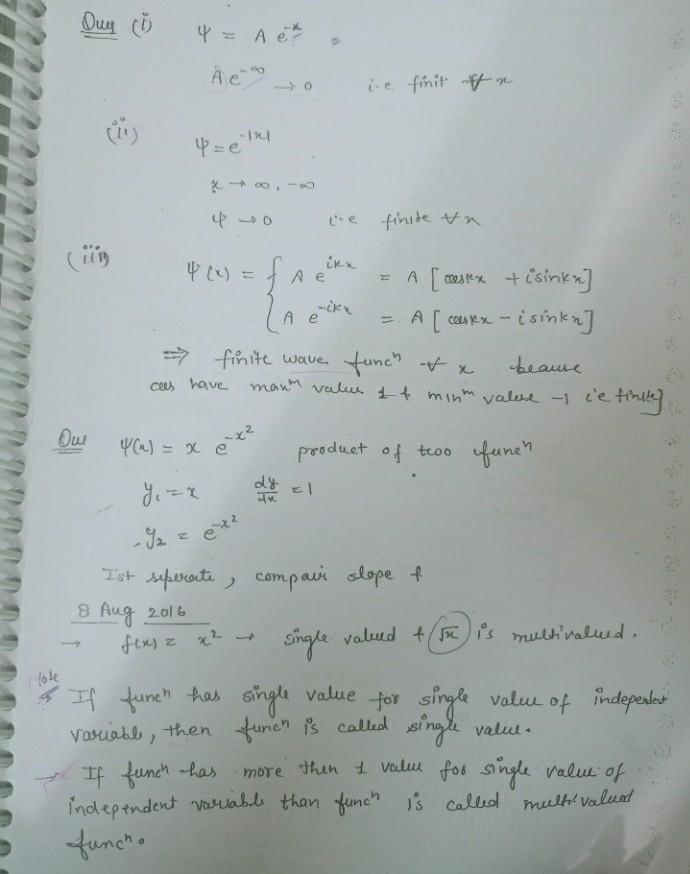 Que (i) Ψ = A e⁻ˣ =
A e^-∞ → 0 i.e finit ∀ x
(ii) Ψ = e^-|x|
x → ∞, -∞
Ψ → 0 i-e finite ∀ x
(iii) Ψ(x) = { A e^ikx = A [cos kx + i sin kx]
{ A e^-ikx = A [cos kx - i sin kx]
⇒ finite wave funcⁿ ∀ x beause
cos have maxᵐ value 1 & minᵐ value -1 i'e finite]
Que Ψ(x) = x e^-x² product of two funcⁿ
y₁ = x dy/dx = 1
y₂ = e^-x²
Ist seperate, compair slope &
8 Aug 2016
→ f(x) = x² → single valued & √x is multivalued.
Note
If funcⁿ has single value for single value of independent
variable, then funcⁿ is called single value.
→ If funcⁿ has more then 1 value for single value of
independent variable than funcⁿ is called multivalued
funcⁿ.